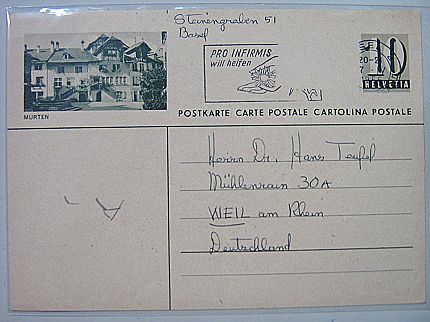 Steinengraben 51
Basel
PRO INFIRMIS
will helfen
10
HELVETIA
MURTEN
POSTKARTE CARTE POSTALE CARTOLINA POSTALE
Herrn Dr. Hans Teufel
Mühlenrain 30A
WEIL am Rhein
Deutschland